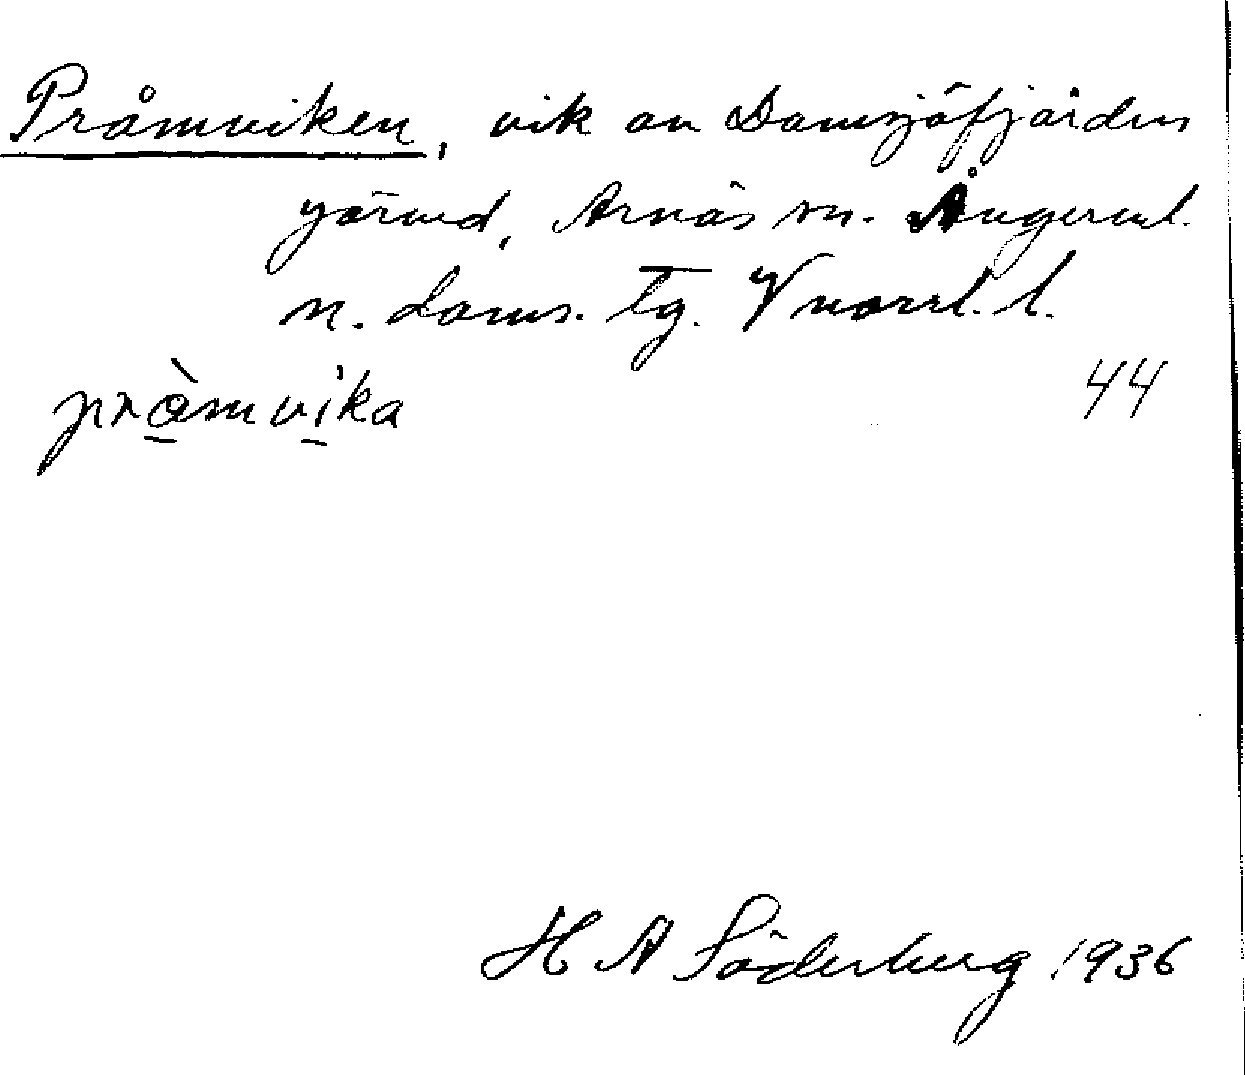 Pråmviken, vik av Damsjöfjärden
Järved, Arnäs sn. Ångerml.
n. doms. Tg. Vnorrl. l.
44
pràmvi̍ka
H A Söderberg 1936